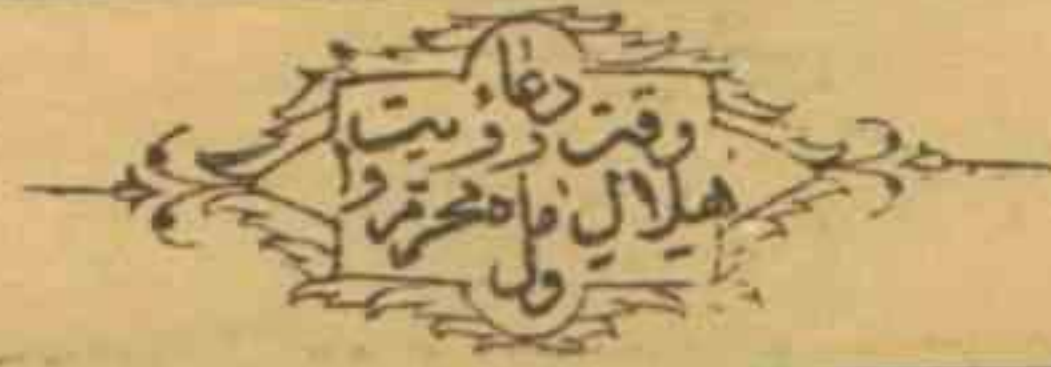 دعاء
وقت رؤیت
هلال ماه محرم وا
ول